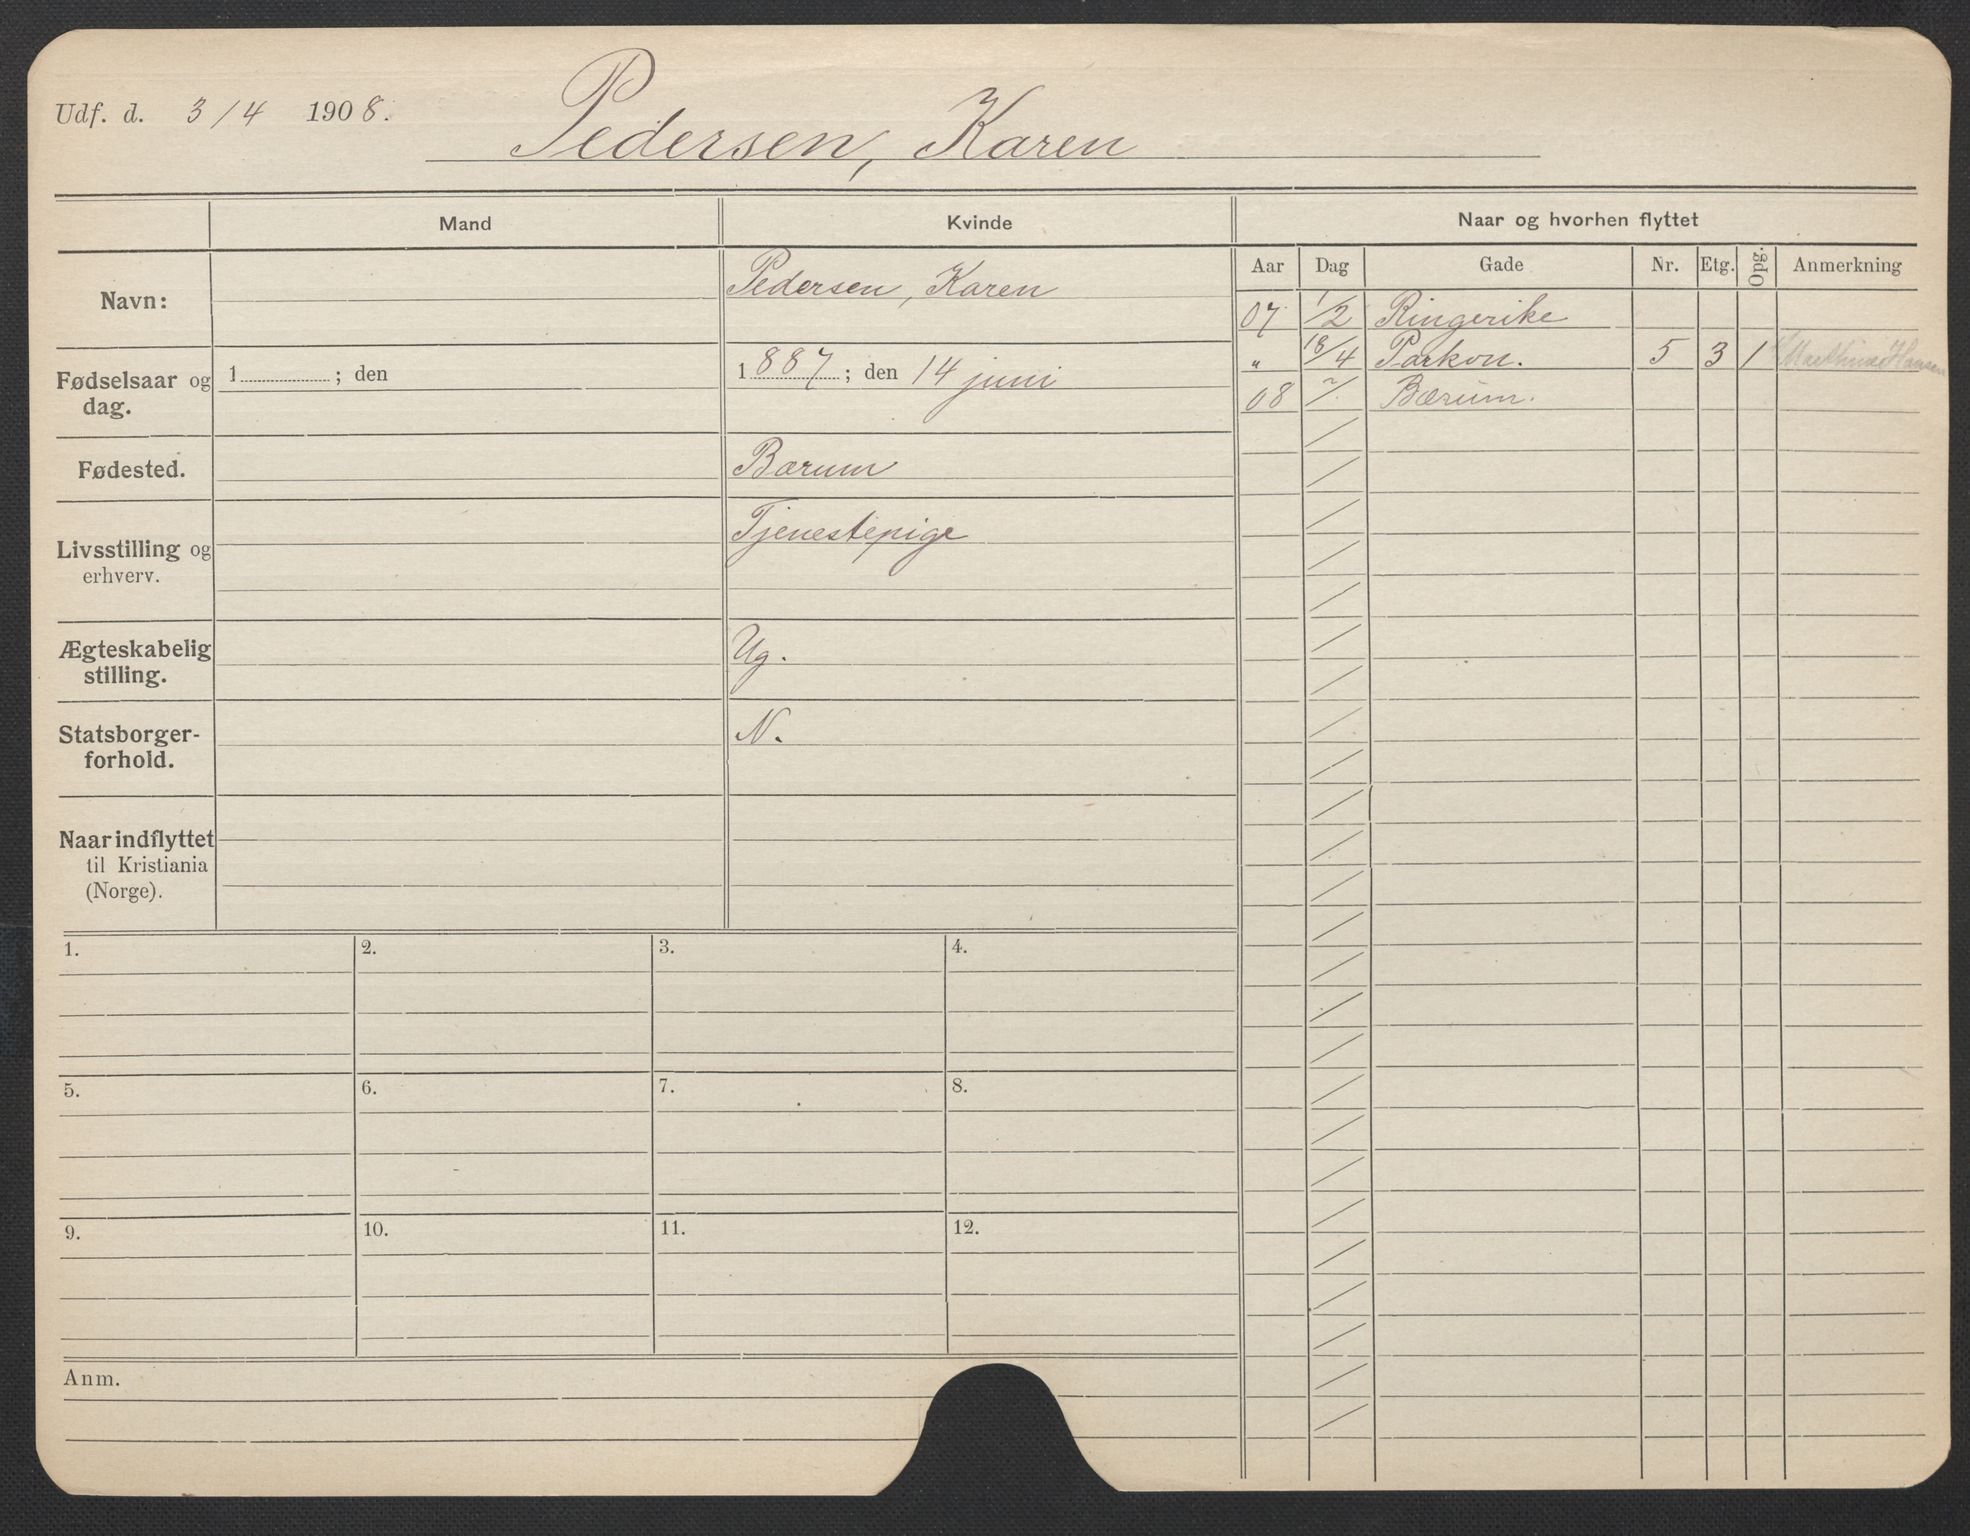 Udf. d. 3/4 1908.
Pedersen, Karen
Mand
Kvinde
Naar og hvorhen flyttet
Aar Dag Gade Nr. Etg. Opg. Anmerkning
Navn:
Pedersen, Karen
Fødselsaar og dag.
1 ; den
1887 ; den 14 juni
Fødested.
Bærum
Livsstilling og
erhverv.
Tjenestepige
Ægteskabelig
stilling.
Ug.
Statsborger-
forhold.
N.
Naar indflyttet
til Kristiania
(Norge).
07 1/2 Ringerike
" 18/4 Parkvn. 5 3 1 Marthinus Hansen
08 Bærum.
1. 2. 3. 4.
5. 6. 7. 8.
9. 10. 11. 12.
Anm.